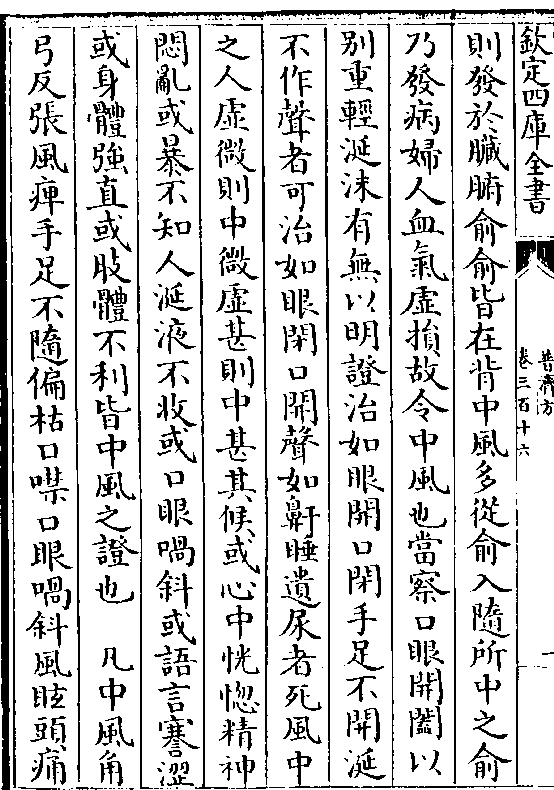 欽定四庫全書
普濟方
卷三百十六
則發於臟腑俞俞皆在背中風多從俞入隨所中之俞
乃發病婦人血氣虛損故令中風也當察口眼開闔以
別重輕涎沫有無以明證治如眼開口閉手足不開涎
不作聲者可治如眼閉口開聲如鼾睡遺尿者死風中
之人虛微則中微虛甚則中甚其候或心中恍惚精神
悶亂或暴不知人涎液不收或口眼喎斜或語言蹇澀
或身體強直或肢體不利皆中風之證也 凡中風角
弓反張風痺手足不隨偏枯口噤口眼喎斜風眩頭痛